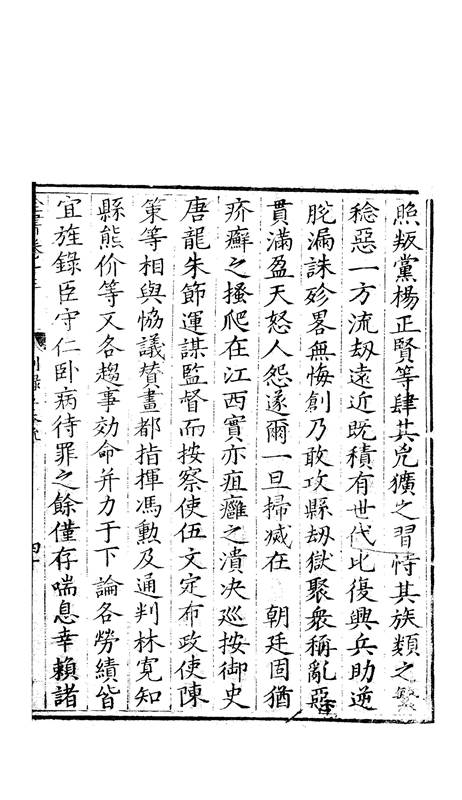 照叛黨楊正賢等肆其兇獷之習恃其族類之繁
稔惡一方流刼遠近既積有世代比復興兵助逆
脫漏誅殄畧無悔創乃敢攻縣刼獄聚衆稱亂惡
貫滿盈天怒人怨遂爾一旦掃滅在　朝廷固猶
疥癬之搔爬在江西實亦疽癰之潰决巡按御史
唐龍朱節運謀監督而按察使伍文定布政使陳
策等相與恊議賛畫都指揮馮勲及通判林寛知
縣熊价等又各趨事効命并力于下論各勞績皆
宜旌錄臣守仁卧病待罪之餘僅存喘息幸賴諸